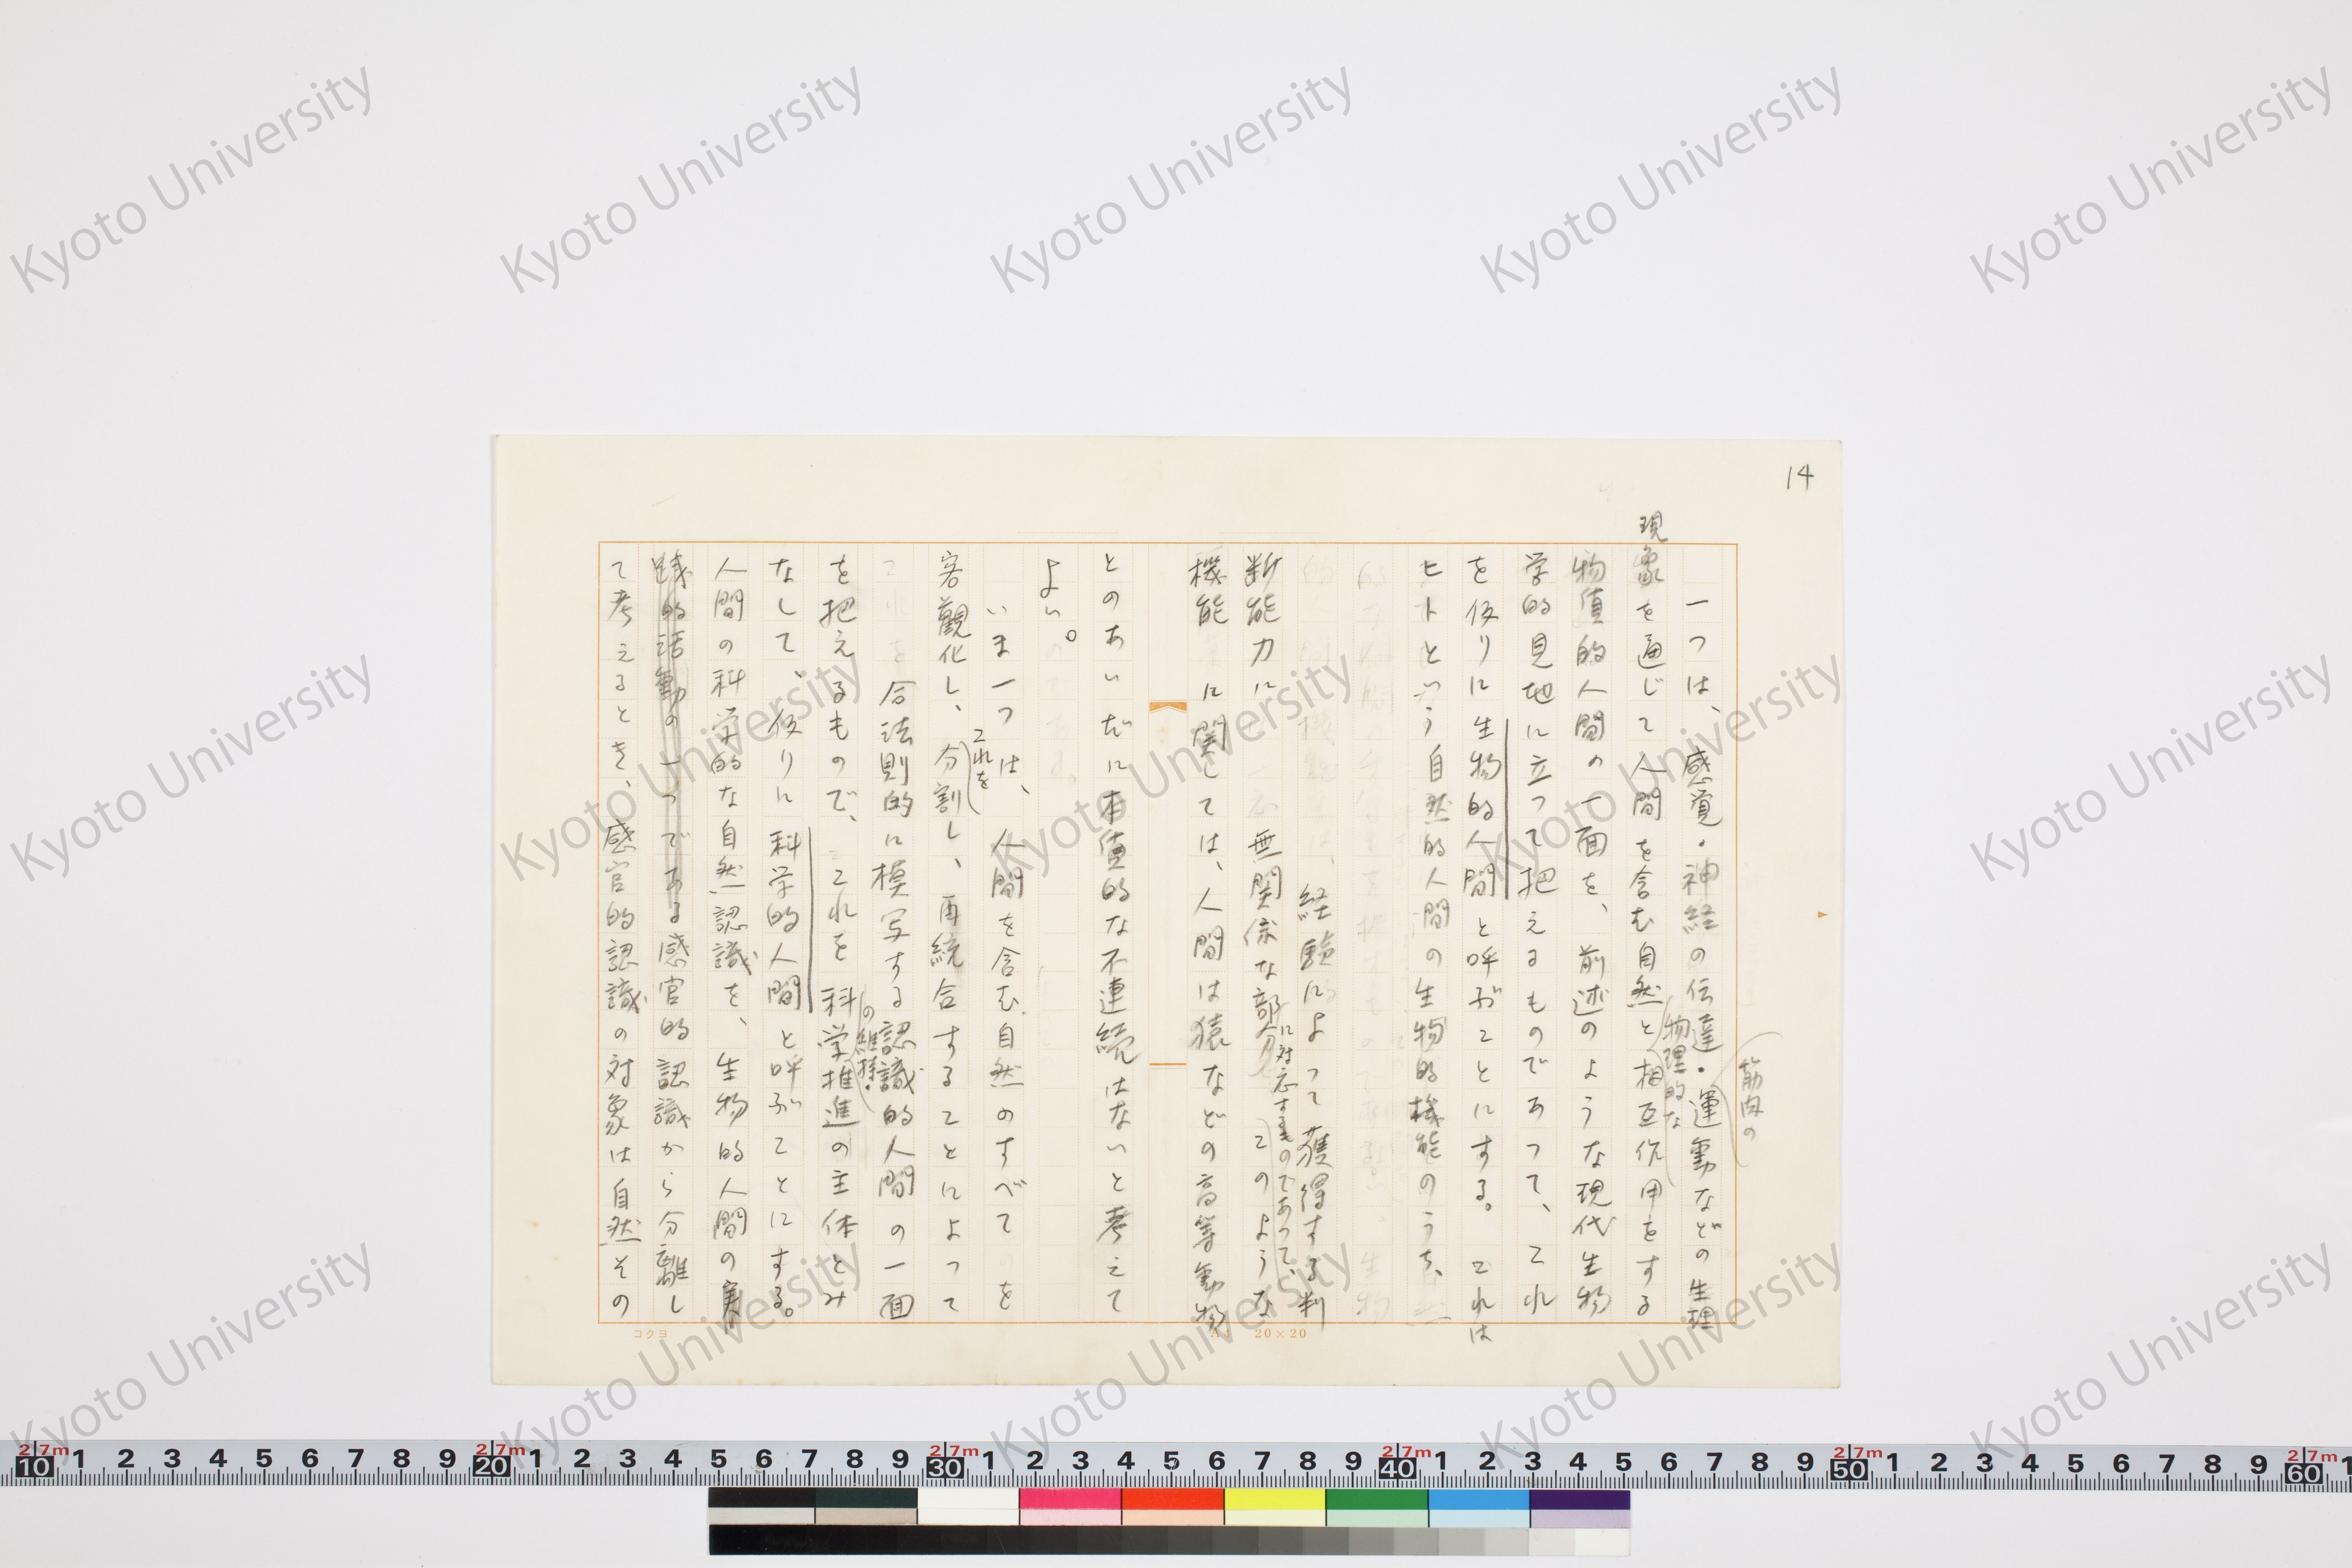 14
一つは、感覚・神経の伝達・筋肉の運動などの生理
現象を通じて人間を含む自然と物理的な相互作用をする
物質的人間の一面を、前述のような現代生物
学的見地に立って把えるものであって、これ
を仮りに生物的人間と呼ぶことにする。これは
ヒトという自然的人間の生物的機能のうち、
経験によって獲得する判
断能力に無関係な部分に対応するものであって、このような
機能に関しては、人間は猿などの高等動物
とのあいだに本質的な不連続はないと考えて
よい。
いま一つは、人間を含む自然のすべてを
客観化し、これを分割し、再統合することによって
合法則的に模写する認識的人間の一面
を把えるもので、これを科学の維持・推進の主体とみ
なして、仮りに科学的人間と呼ぶことにする。
人間の科学的な自然認識を、生物的人間の実
践的活動の一つである感官的認識から分離し
て考えるとき、感官的認識の対象は自然その
コクヨ
20×20
Kyoto University